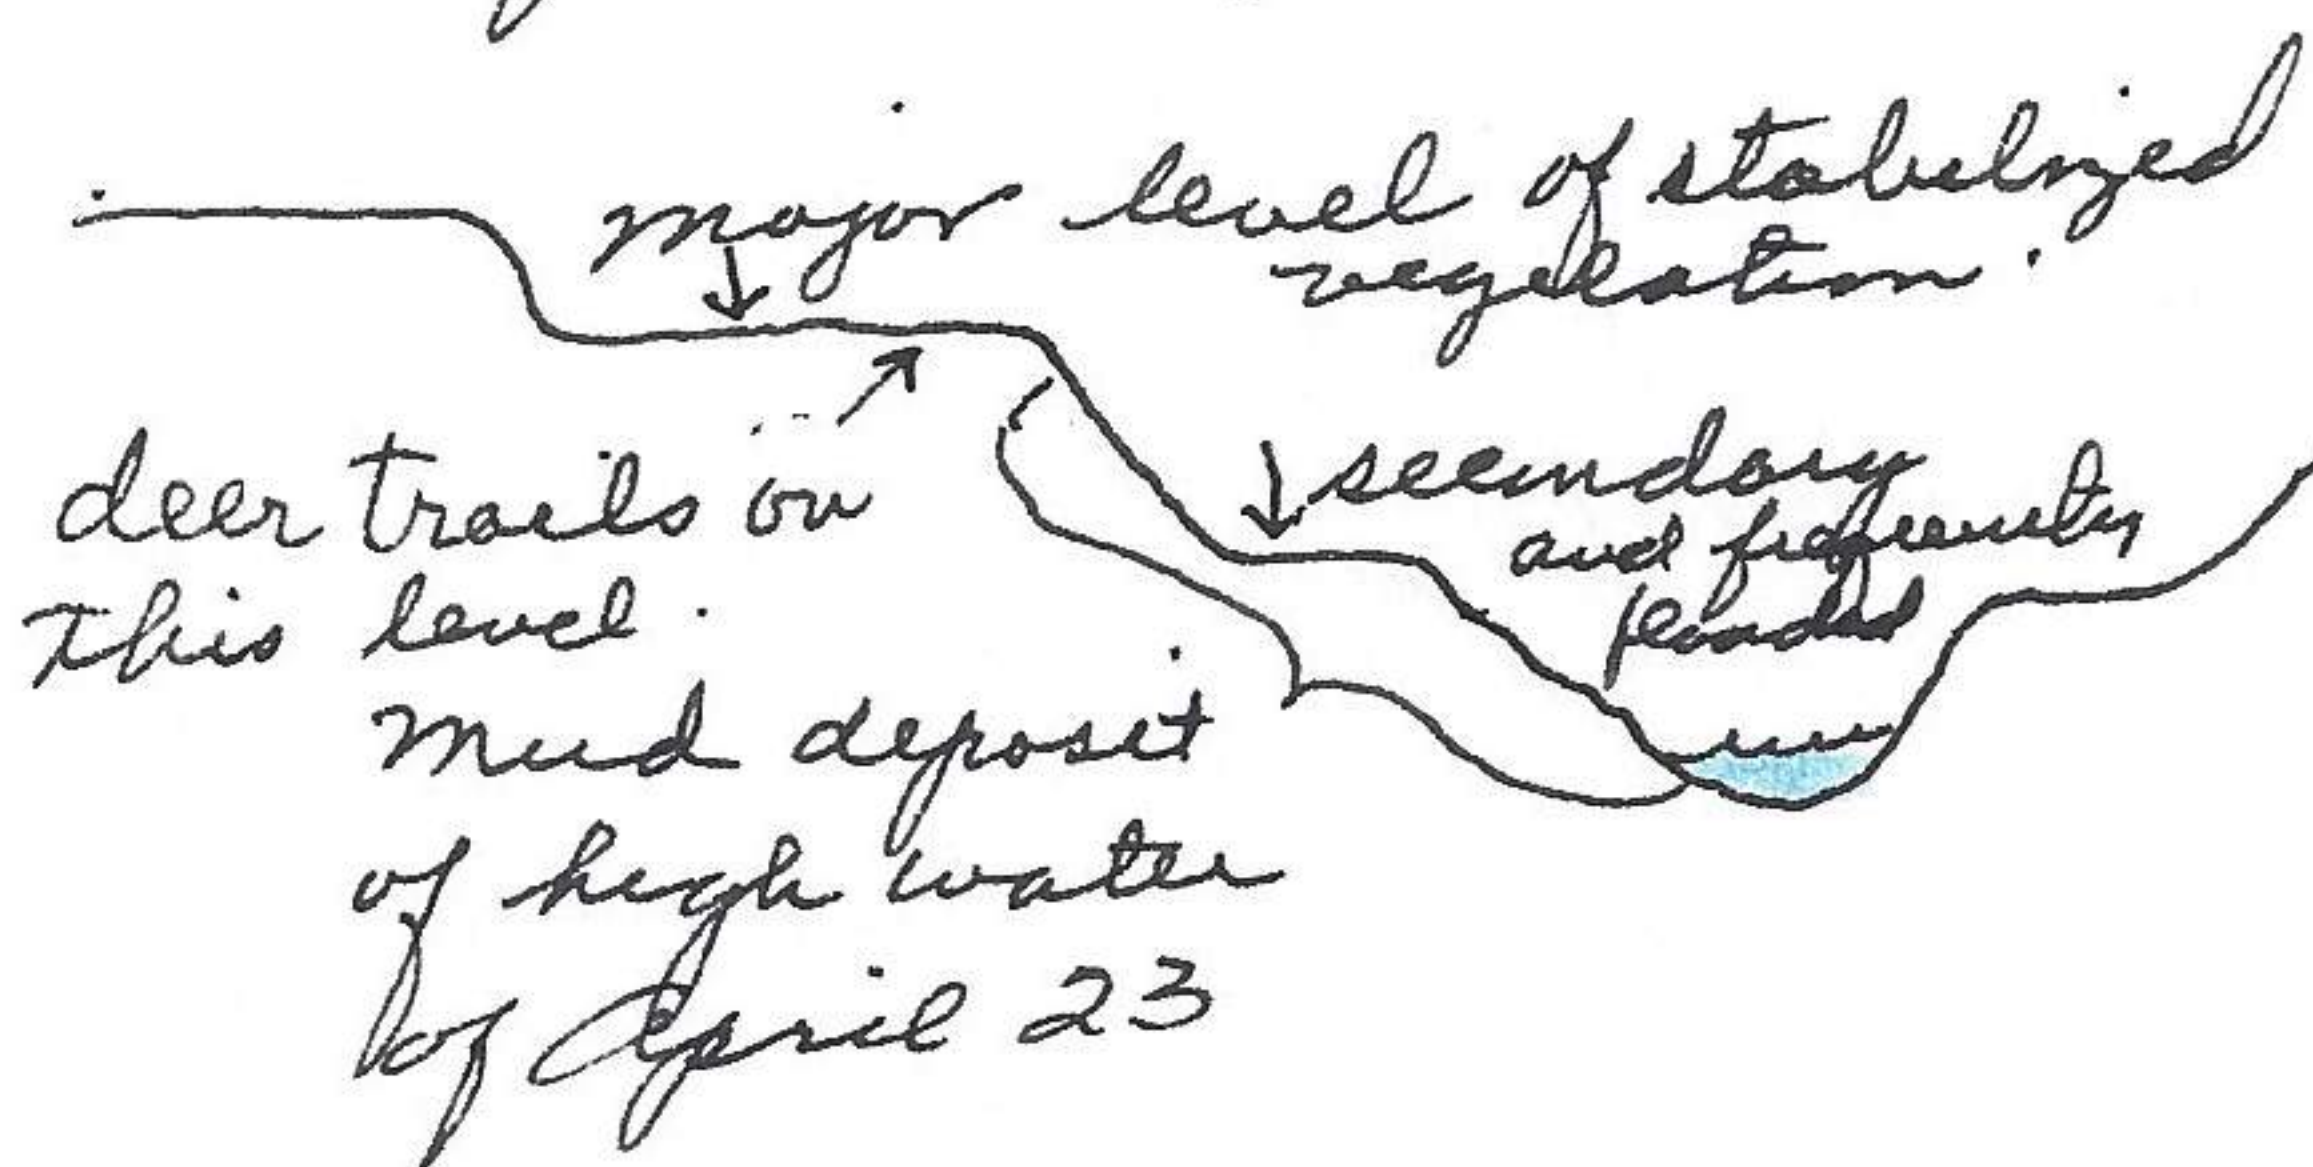 major level of stabelized
vegetation.
deer trails on
this level.
secondary
and frequently
flooded
Mud deposit
of high water
of April 23